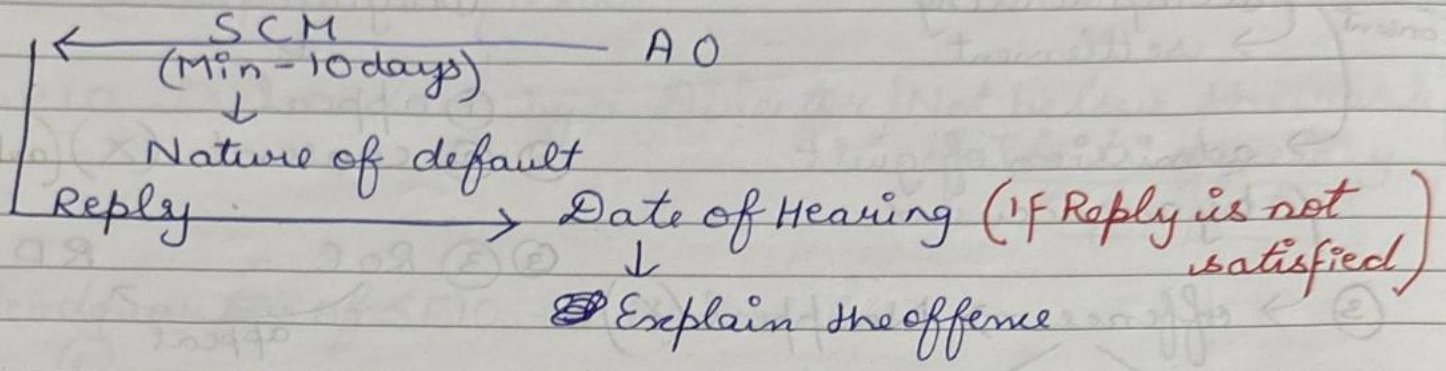 SCM AO
(Min-10 days)
Nature of default
Reply Date of Hearing (IF Reply is not
satisfied)
Explain the offence